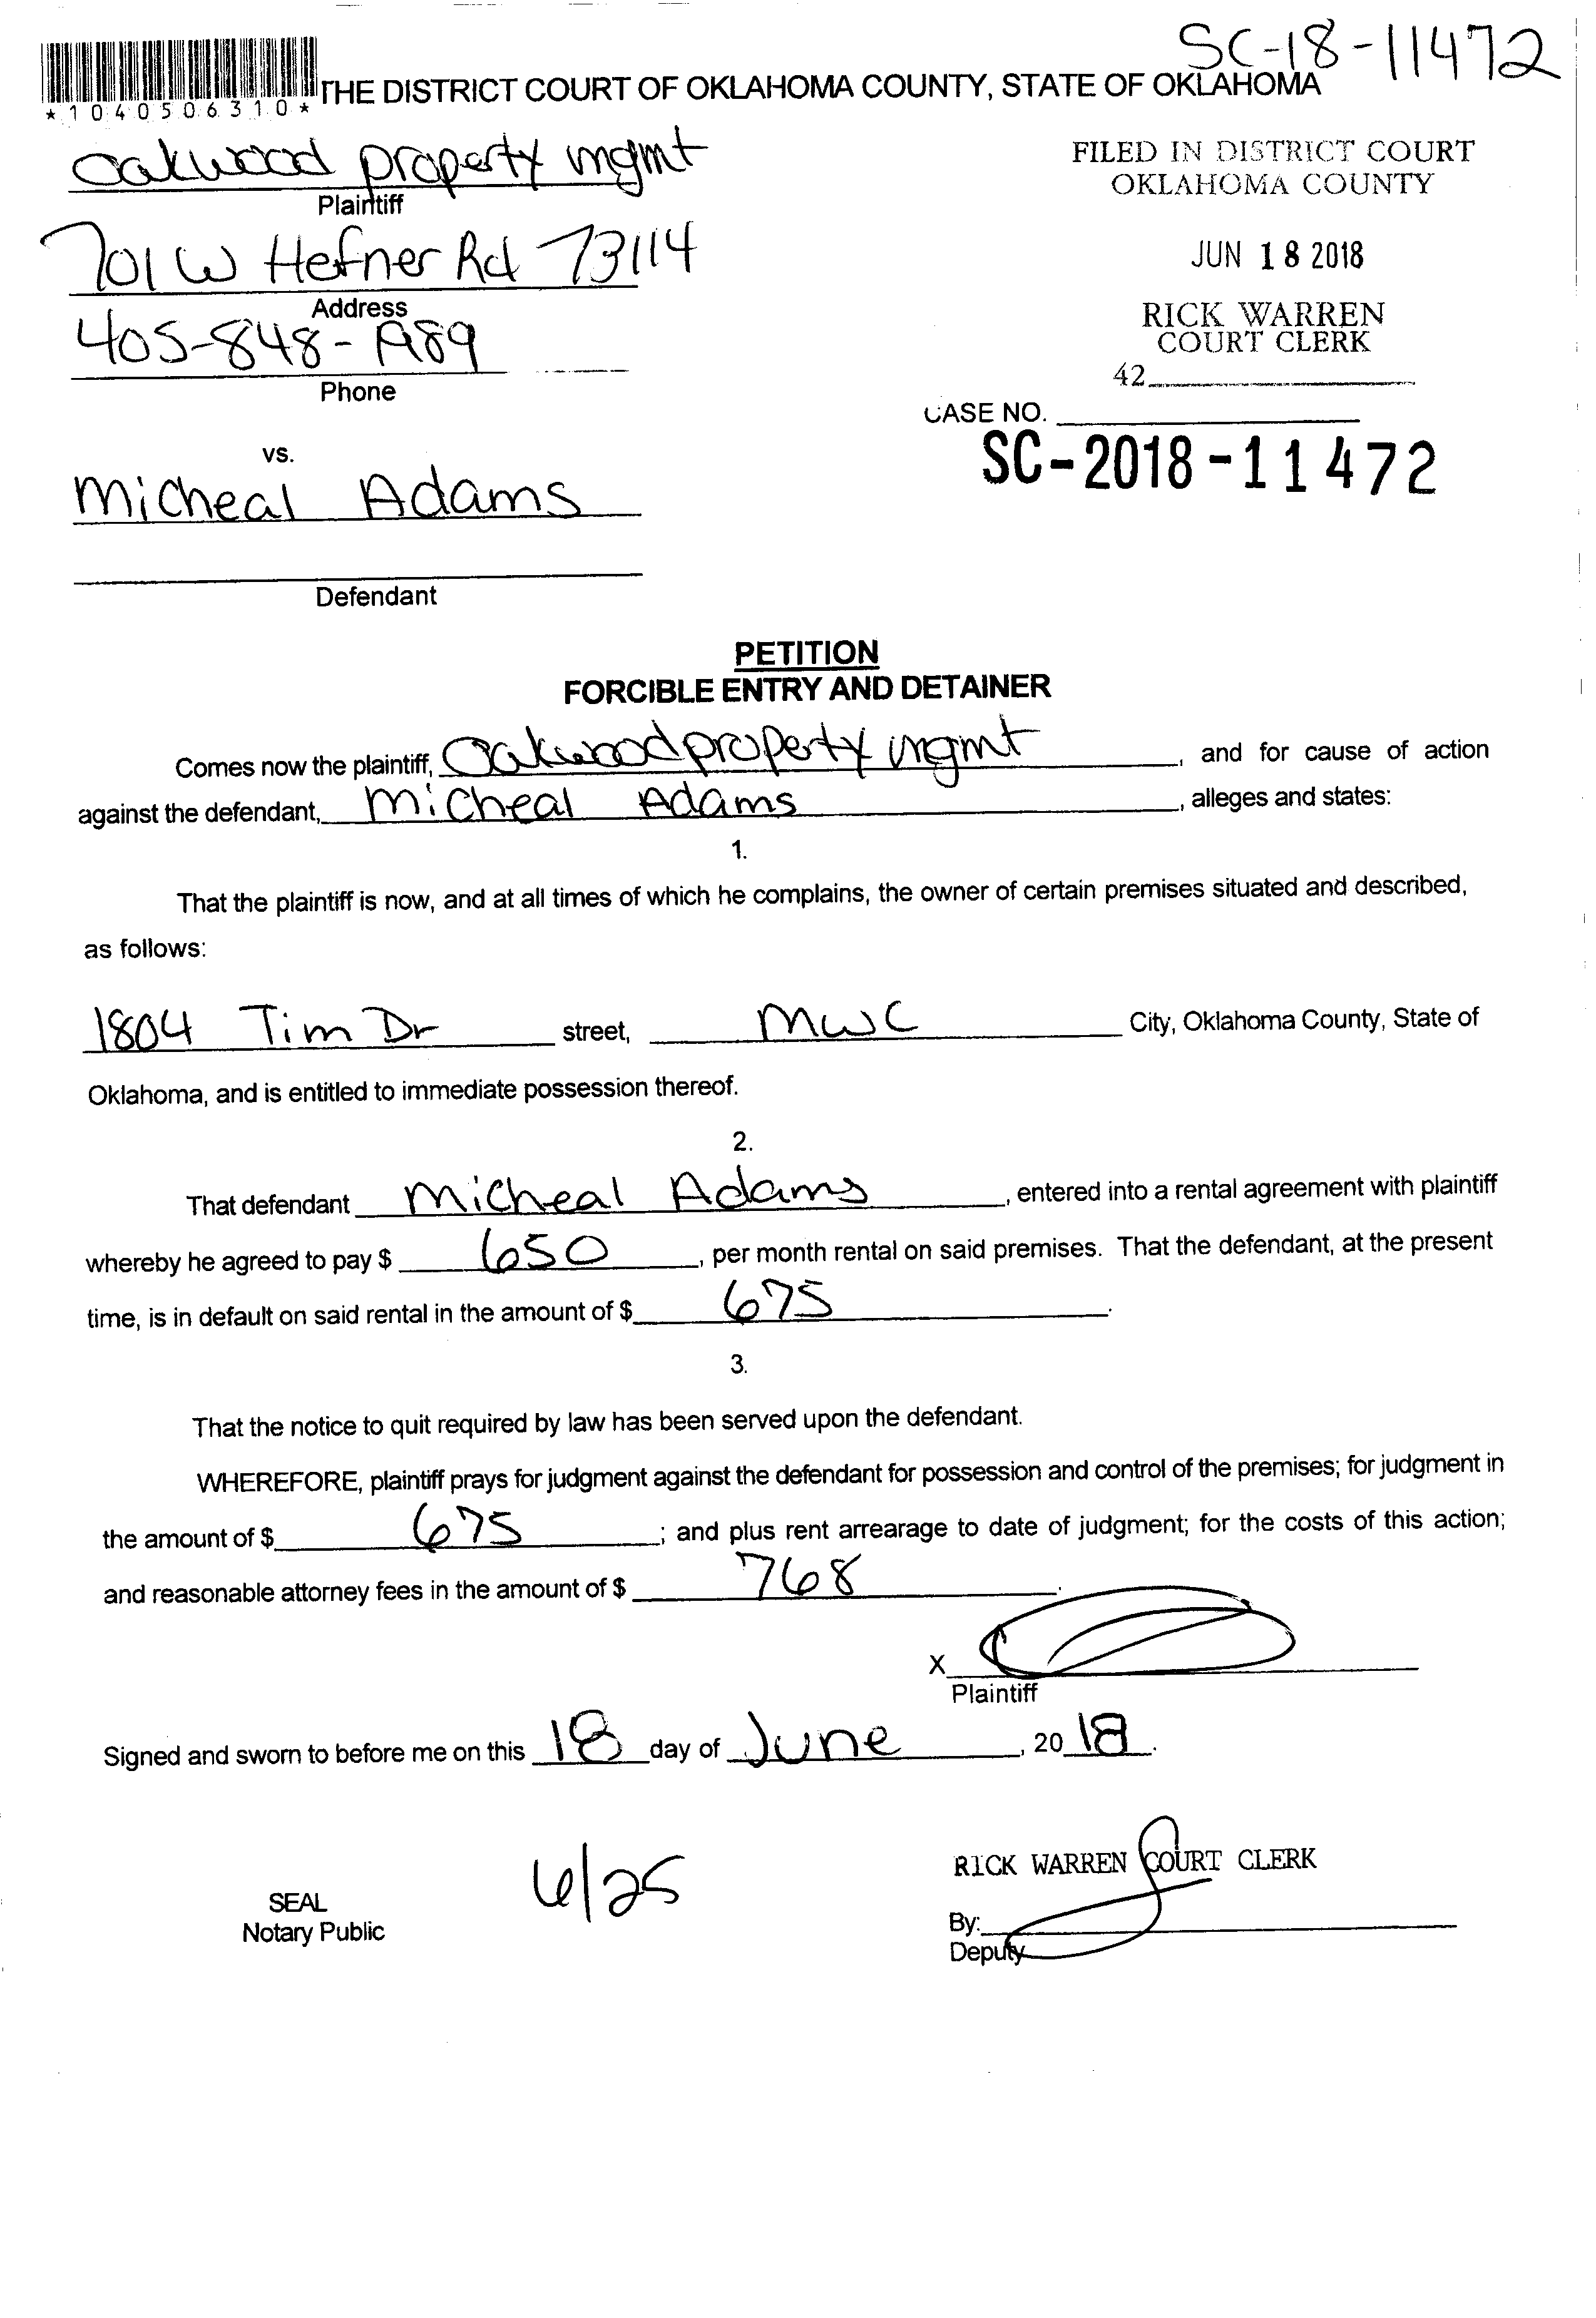 SC-18-11472
*1040506310* THE DISTRICT COURT OF OKLAHOMA COUNTY, STATE OF OKLAHOMA
Oakwood property mgmt
Plaintiff
FILED IN DISTRICT COURT
OKLAHOMA COUNTY
701 W Hefner Rd 73114
Address
JUN 18 2018
405-848-1989
Phone
RICK WARREN
COURT CLERK
42
CASE NO.
SC-2018-11472
vs.
Micheal Adams
Defendant
PETITION
FORCIBLE ENTRY AND DETAINER
Comes now the plaintiff, Oakwood property mgmt, and for cause of action
against the defendant, Micheal Adams, alleges and states:
1.
That the plaintiff is now, and at all times of which he complains, the owner of certain premises situated and described,
as follows:
1804 Tim Dr street, MWC City, Oklahoma County, State of
Oklahoma, and is entitled to immediate possession thereof.
2.
That defendant Micheal Adams, entered into a rental agreement with plaintiff
whereby he agreed to pay $ 650, per month rental on said premises. That the defendant, at the present
time, is in default on said rental in the amount of $ 675.
3.
That the notice to quit required by law has been served upon the defendant.
WHEREFORE, plaintiff prays for judgment against the defendant for possession and control of the premises; for judgment in
the amount of $ 675; and plus rent arrearage to date of judgment; for the costs of this action;
and reasonable attorney fees in the amount of $ 768.
X
Plaintiff
Signed and sworn to before me on this 18 day of June, 2018.
6/25
RICK WARREN COURT CLERK
SEAL
Notary Public
By:
Deputy